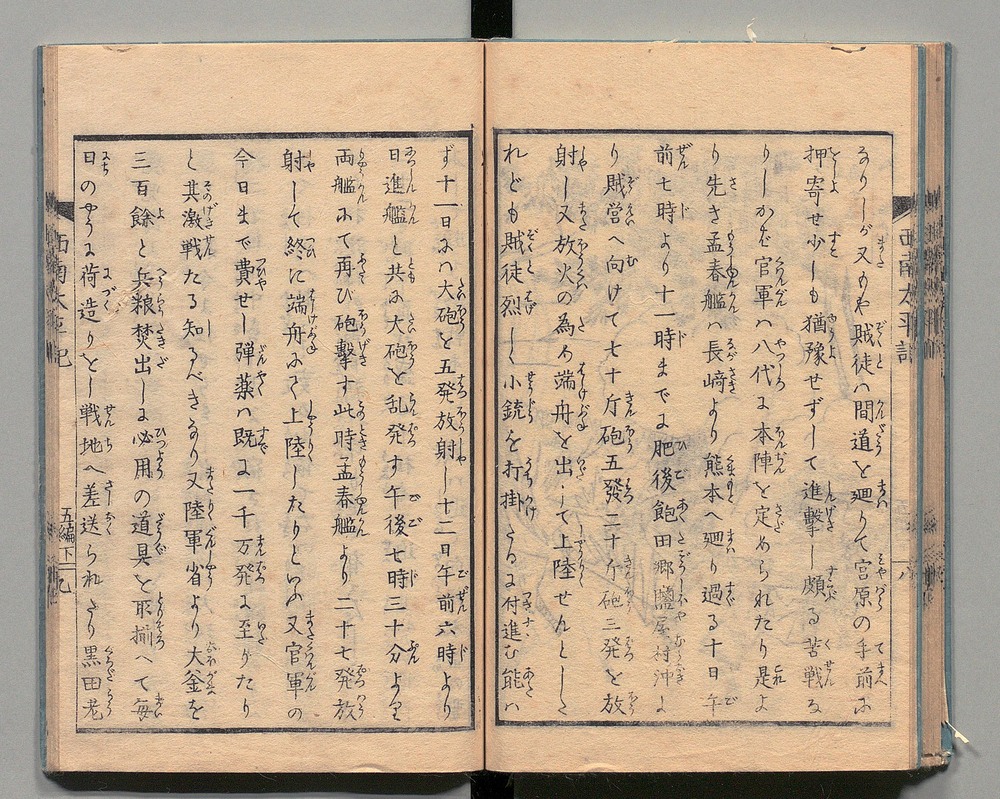 なりしが又もや賊徒ハ間道を廻りて宮原の手前に
押寄せ少しも猶豫せずして進撃し頗る苦戦な
りしかど官軍ハ八代に本陣を定められたり是よ
り先き孟春艦ハ長﨑より熊本へ廻り過る十日午
前七時より十一時までに肥後飽田郷鹽屋村沖よ
り賊営へ向けて七十斤砲五發二十斤砲三発を放
射し又放火の為め端舟を出して上陸せんとした
れども賊徒烈しく小銃を打掛たるに付進む能ハ
ず十一日にハ大砲を五発放射し十二日午前六時より
日進艦と共に大砲を乱発す午後七時三十分より
両艦にて再び砲撃す此時孟春艦より二十七発放
射して終に端舟にて上陸したりといふ又官軍の
今日まで費せし弾薬ハ既に一千万発に至りたり
と其激戦たる知るべきなり又陸軍省より大釜を
三百餘と兵粮焚出しに必用の道具を取揃へて毎
日のやうに荷造りをし戦地へ差送られたり黒田老
西南太平記
五編下